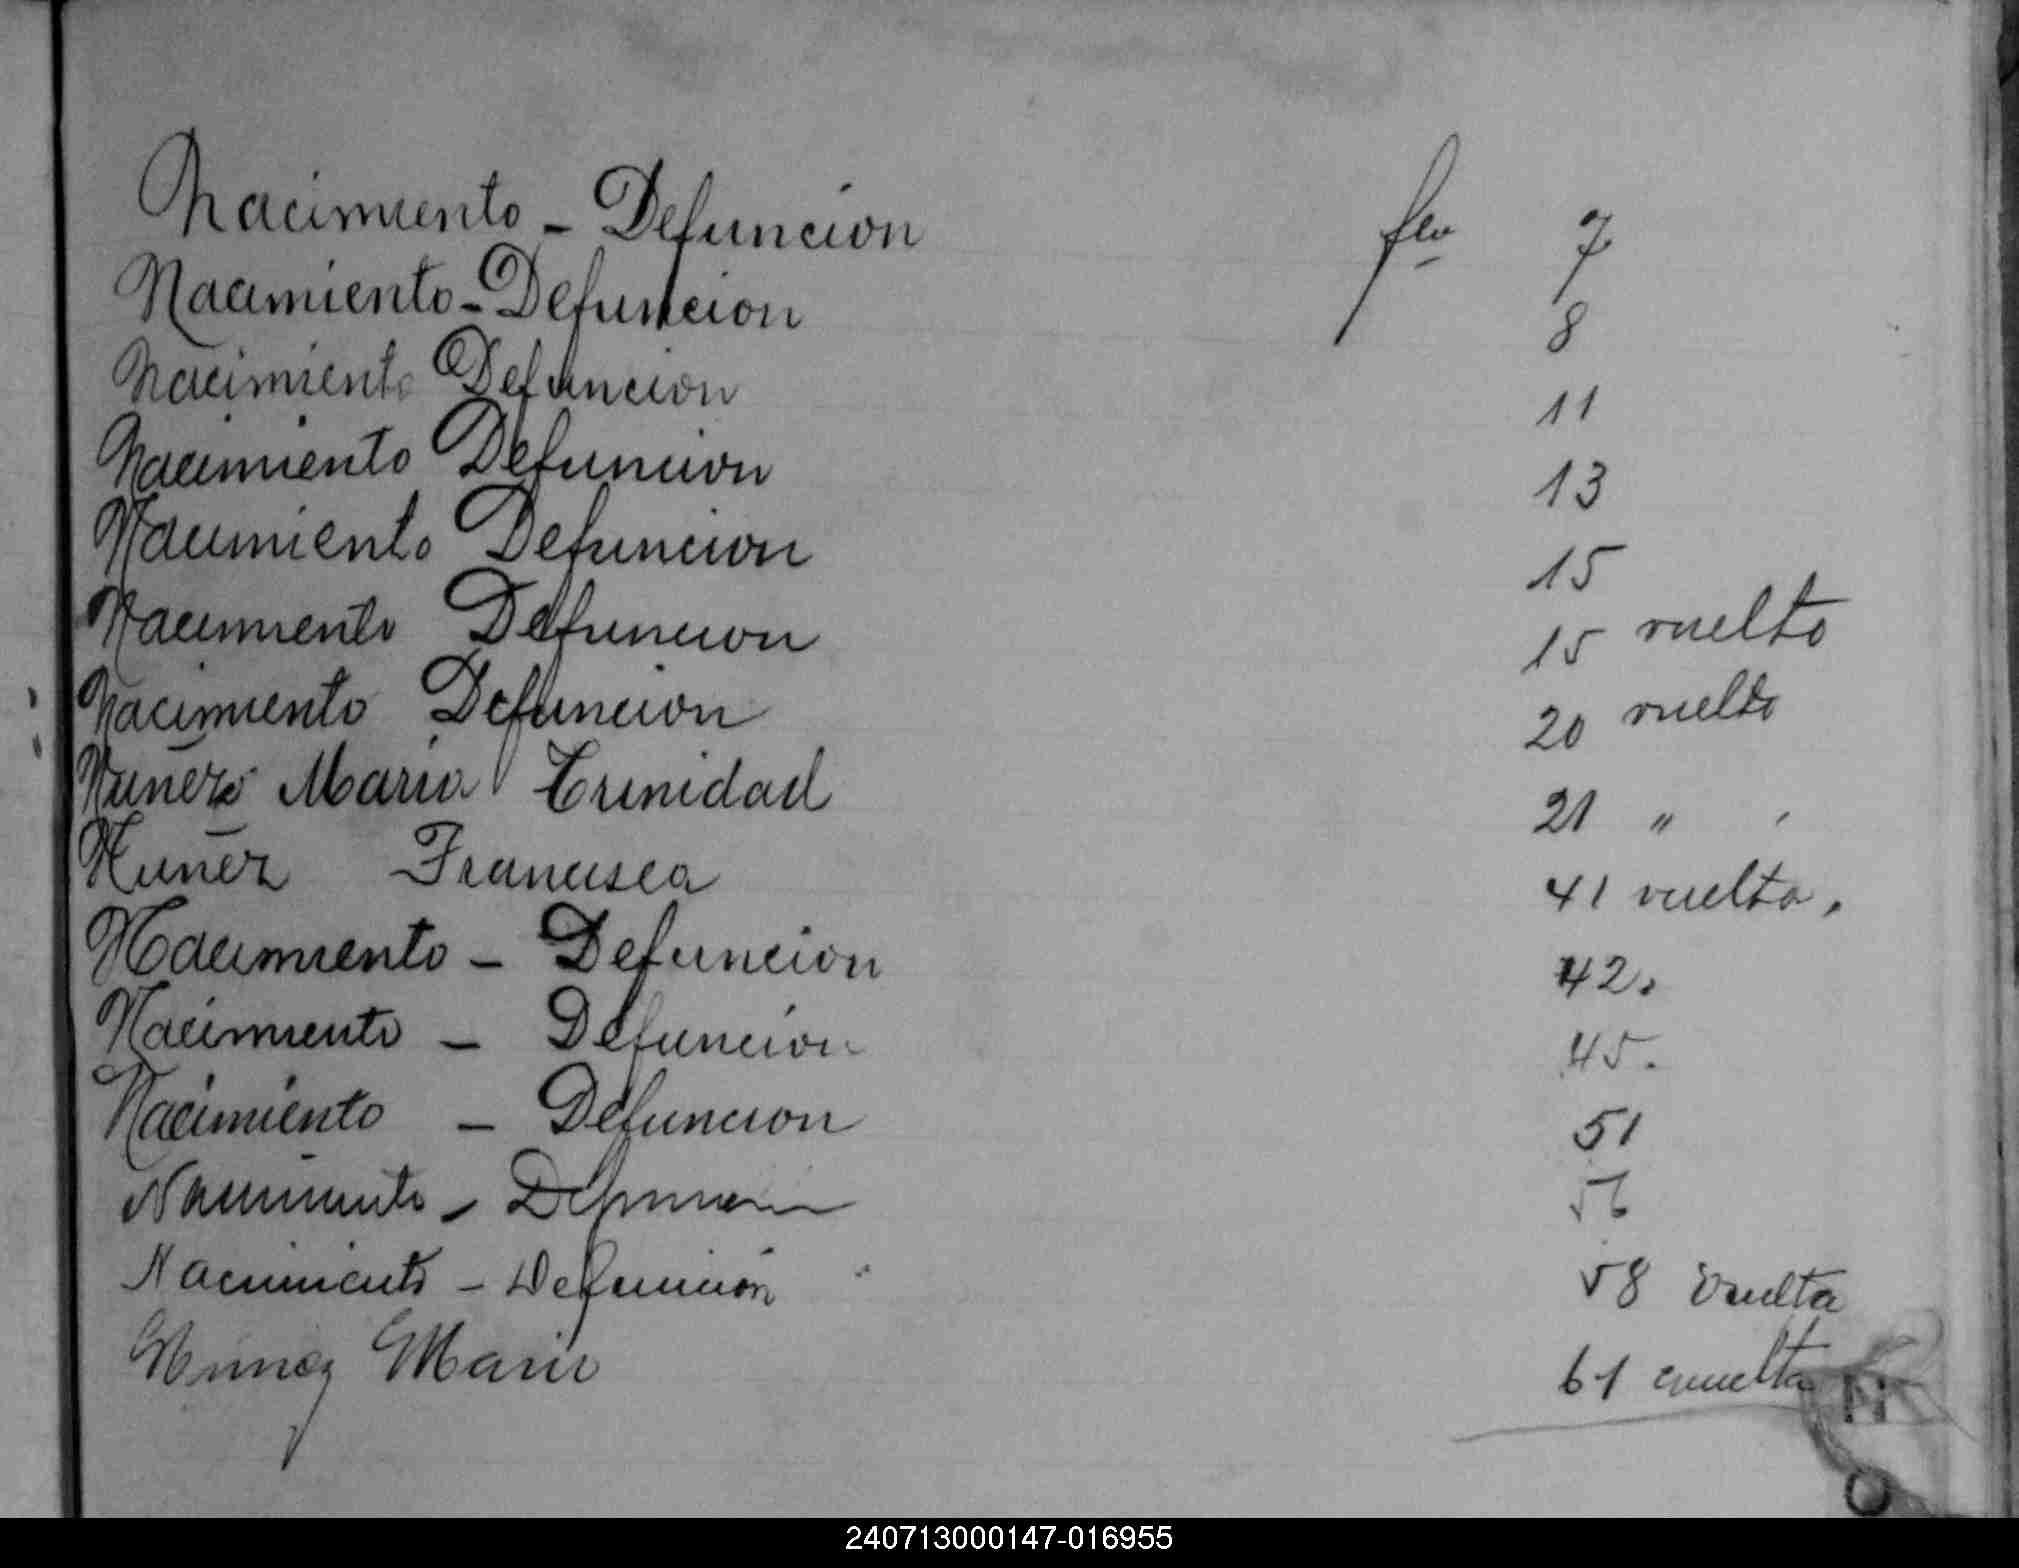 Nacimiento - Defuncion flo 7
Nacimiento - Defuncion 8
Nacimiento Defuncion 11
Nacimiento Defuncion 13
Nacimiento Defuncion 15
Nacimiento Defuncion 15 vuelto
Nacimiento Defuncion 20 vuelto
Nuñez Maria Trinidad 21 "
Nuñez Francisca 41 vuelta.
Nacimiento - Defuncion 42.
Nacimiento - Defuncion 45.
Nacimiento - Defuncion 51
Nacimiento - Defuncion 56
Nacimiento - Defunción 58 vuelta
Nunez Maria 61 vuelta
N
240713000147-016955